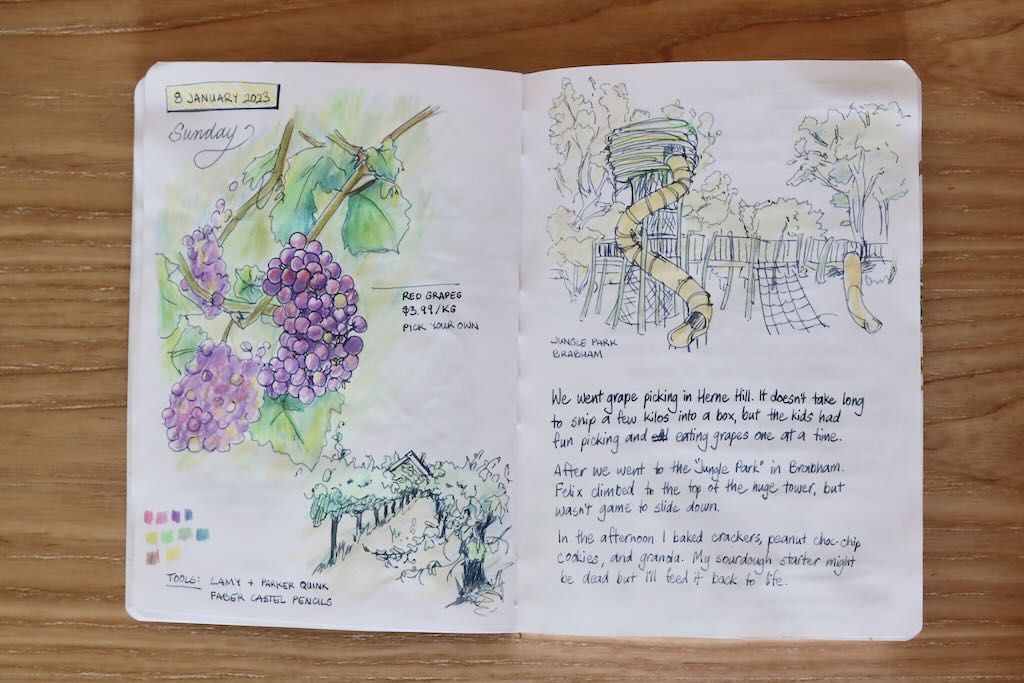 8 JANUARY 2023
Sunday
RED GRAPES
$3.99/KG
PICK YOUR OWN
TOOLS: LAMY + PARKER QUINK
FABER CASTEL PENCILS
JUNGLE PARK
BRABHAM
We went grape picking in Herne Hill. It doesn't take long
to snip a few kilos into a box, but the kids had
fun picking and eating grapes one at a time.
After we went to the "Jungle Park" in Brabham.
Felix climbed to the top of the huge tower, but
wasn't game to slide down.
In the afternoon I baked crackers, peanut choc-chip
cookies, and granola. My sourdough starter might
be dead but I'll feed it back to life.